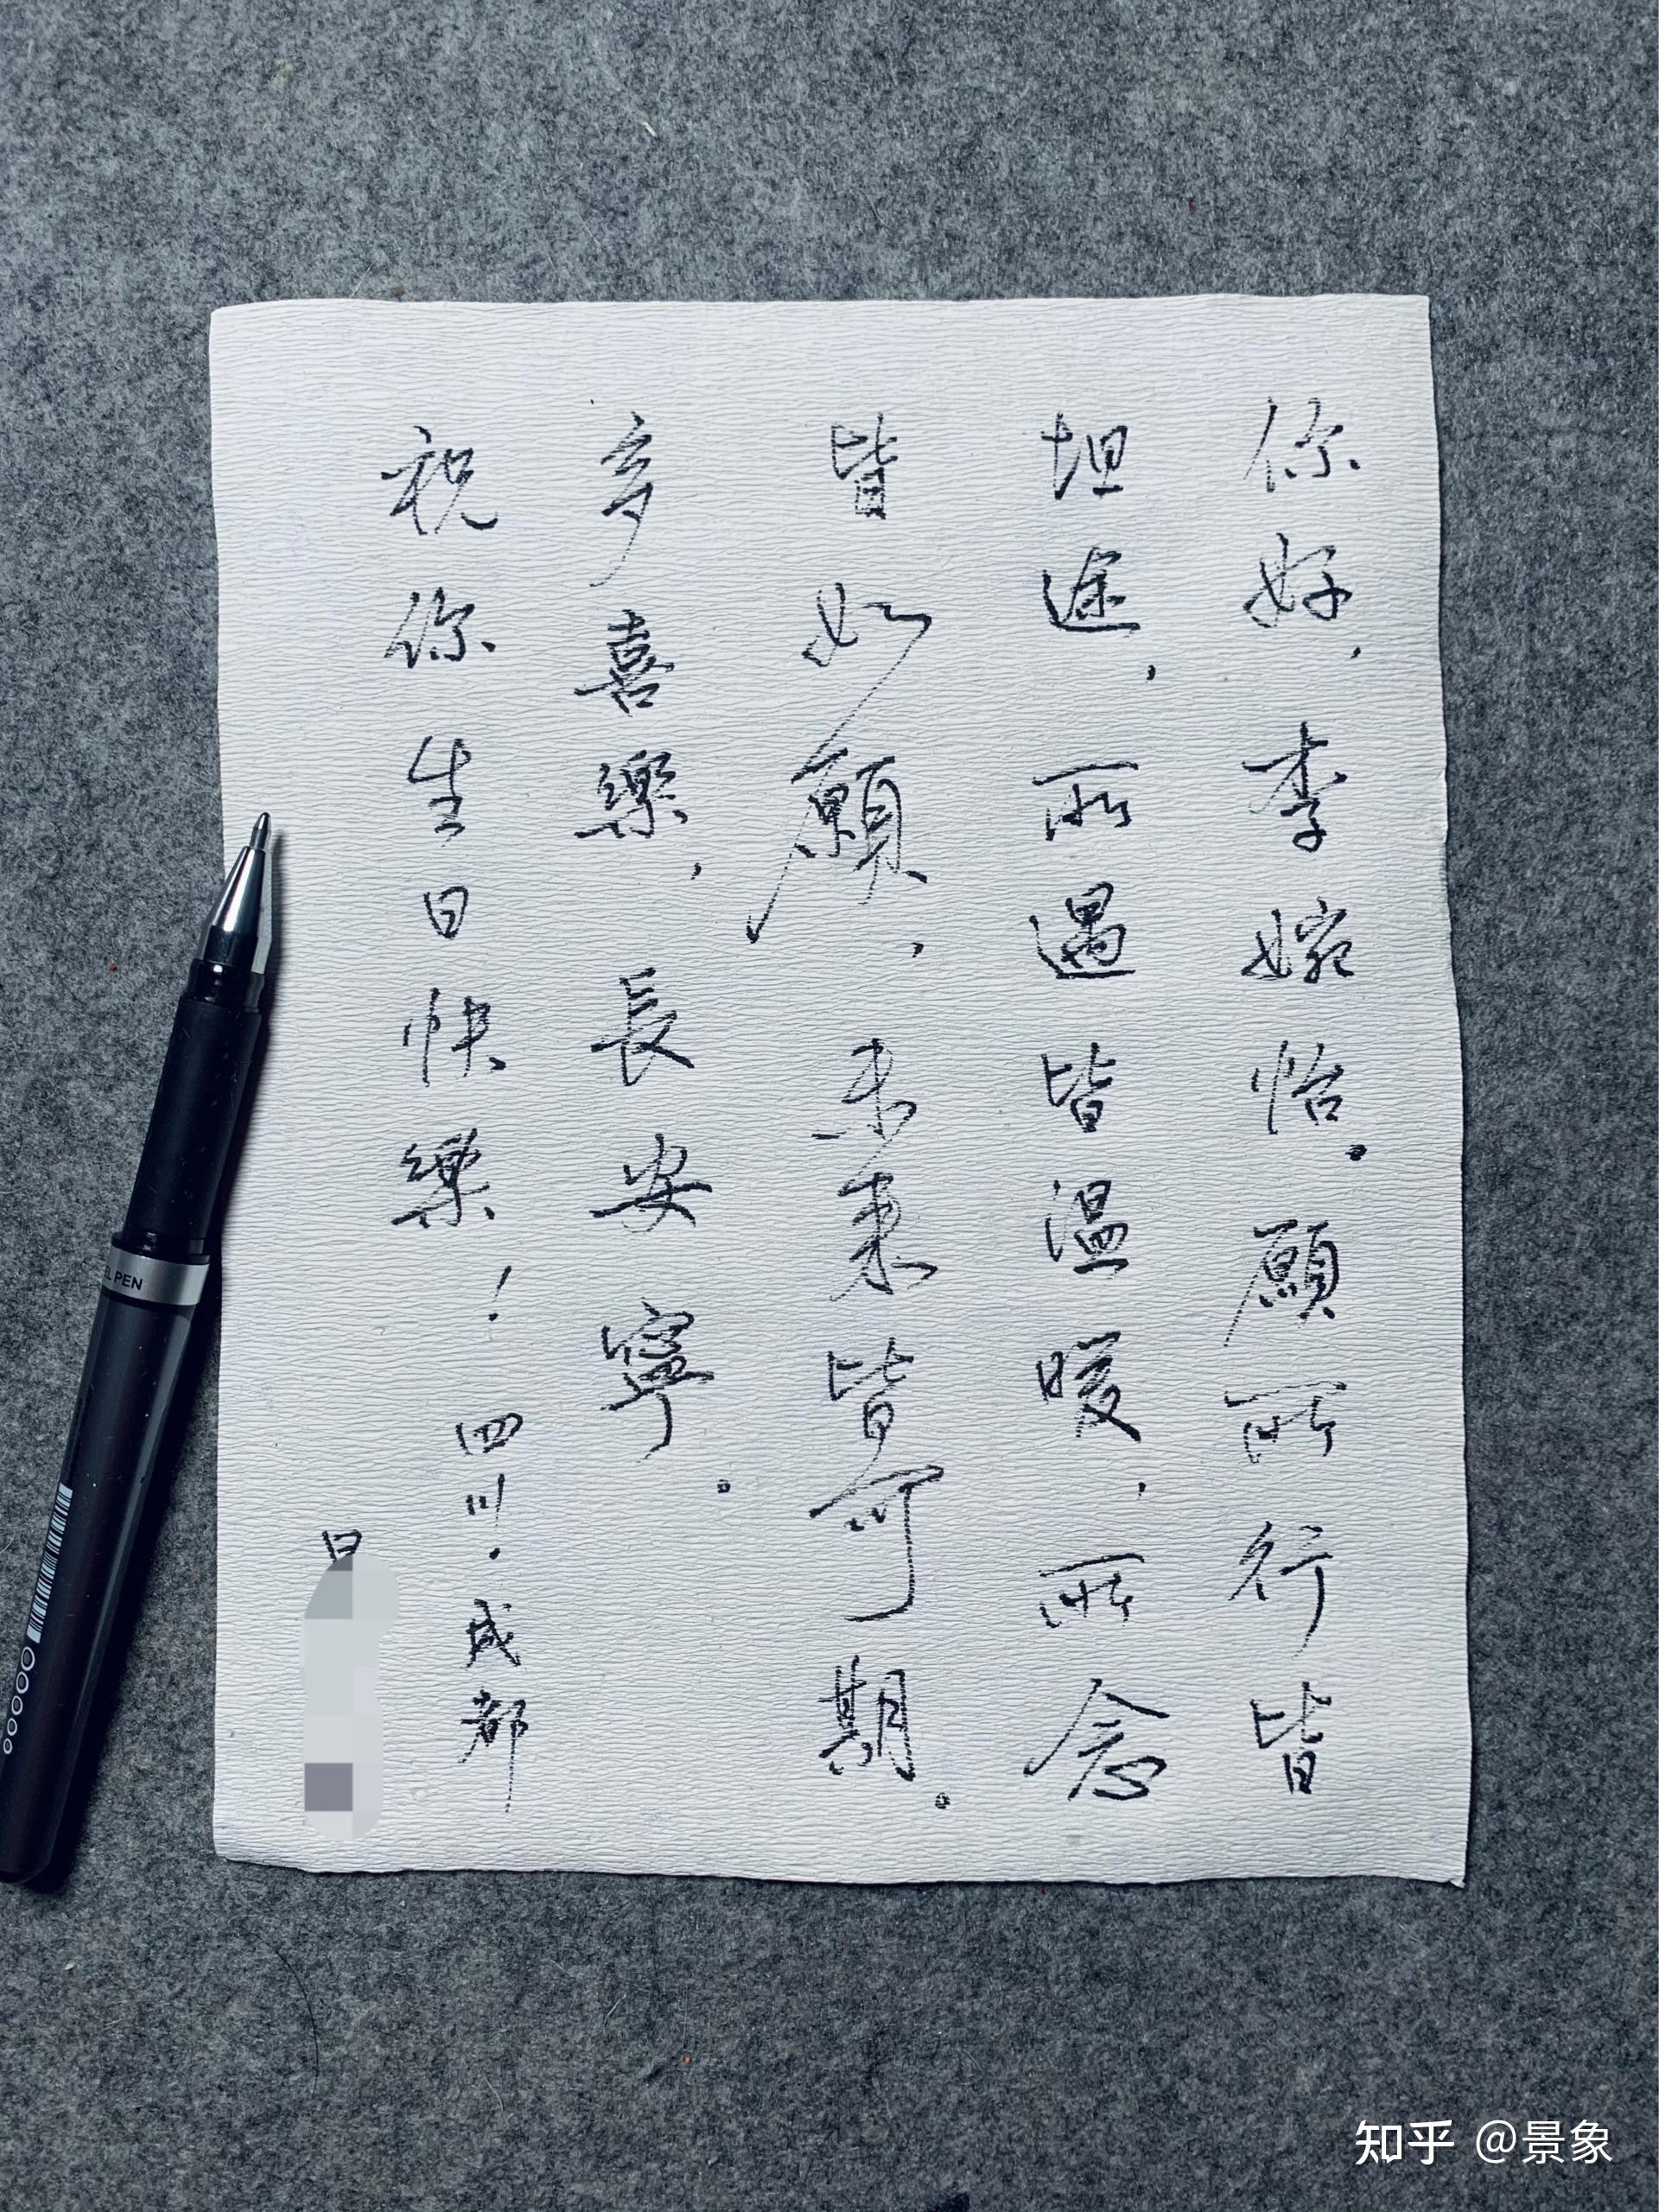 你好，李婉怡。願所行皆
坦途，所遇皆温暖，所念
皆如願，未来皆可期。
多喜樂，長安寧。
祝你生日快樂！
四川·成都
EL PEN
知乎 @景象